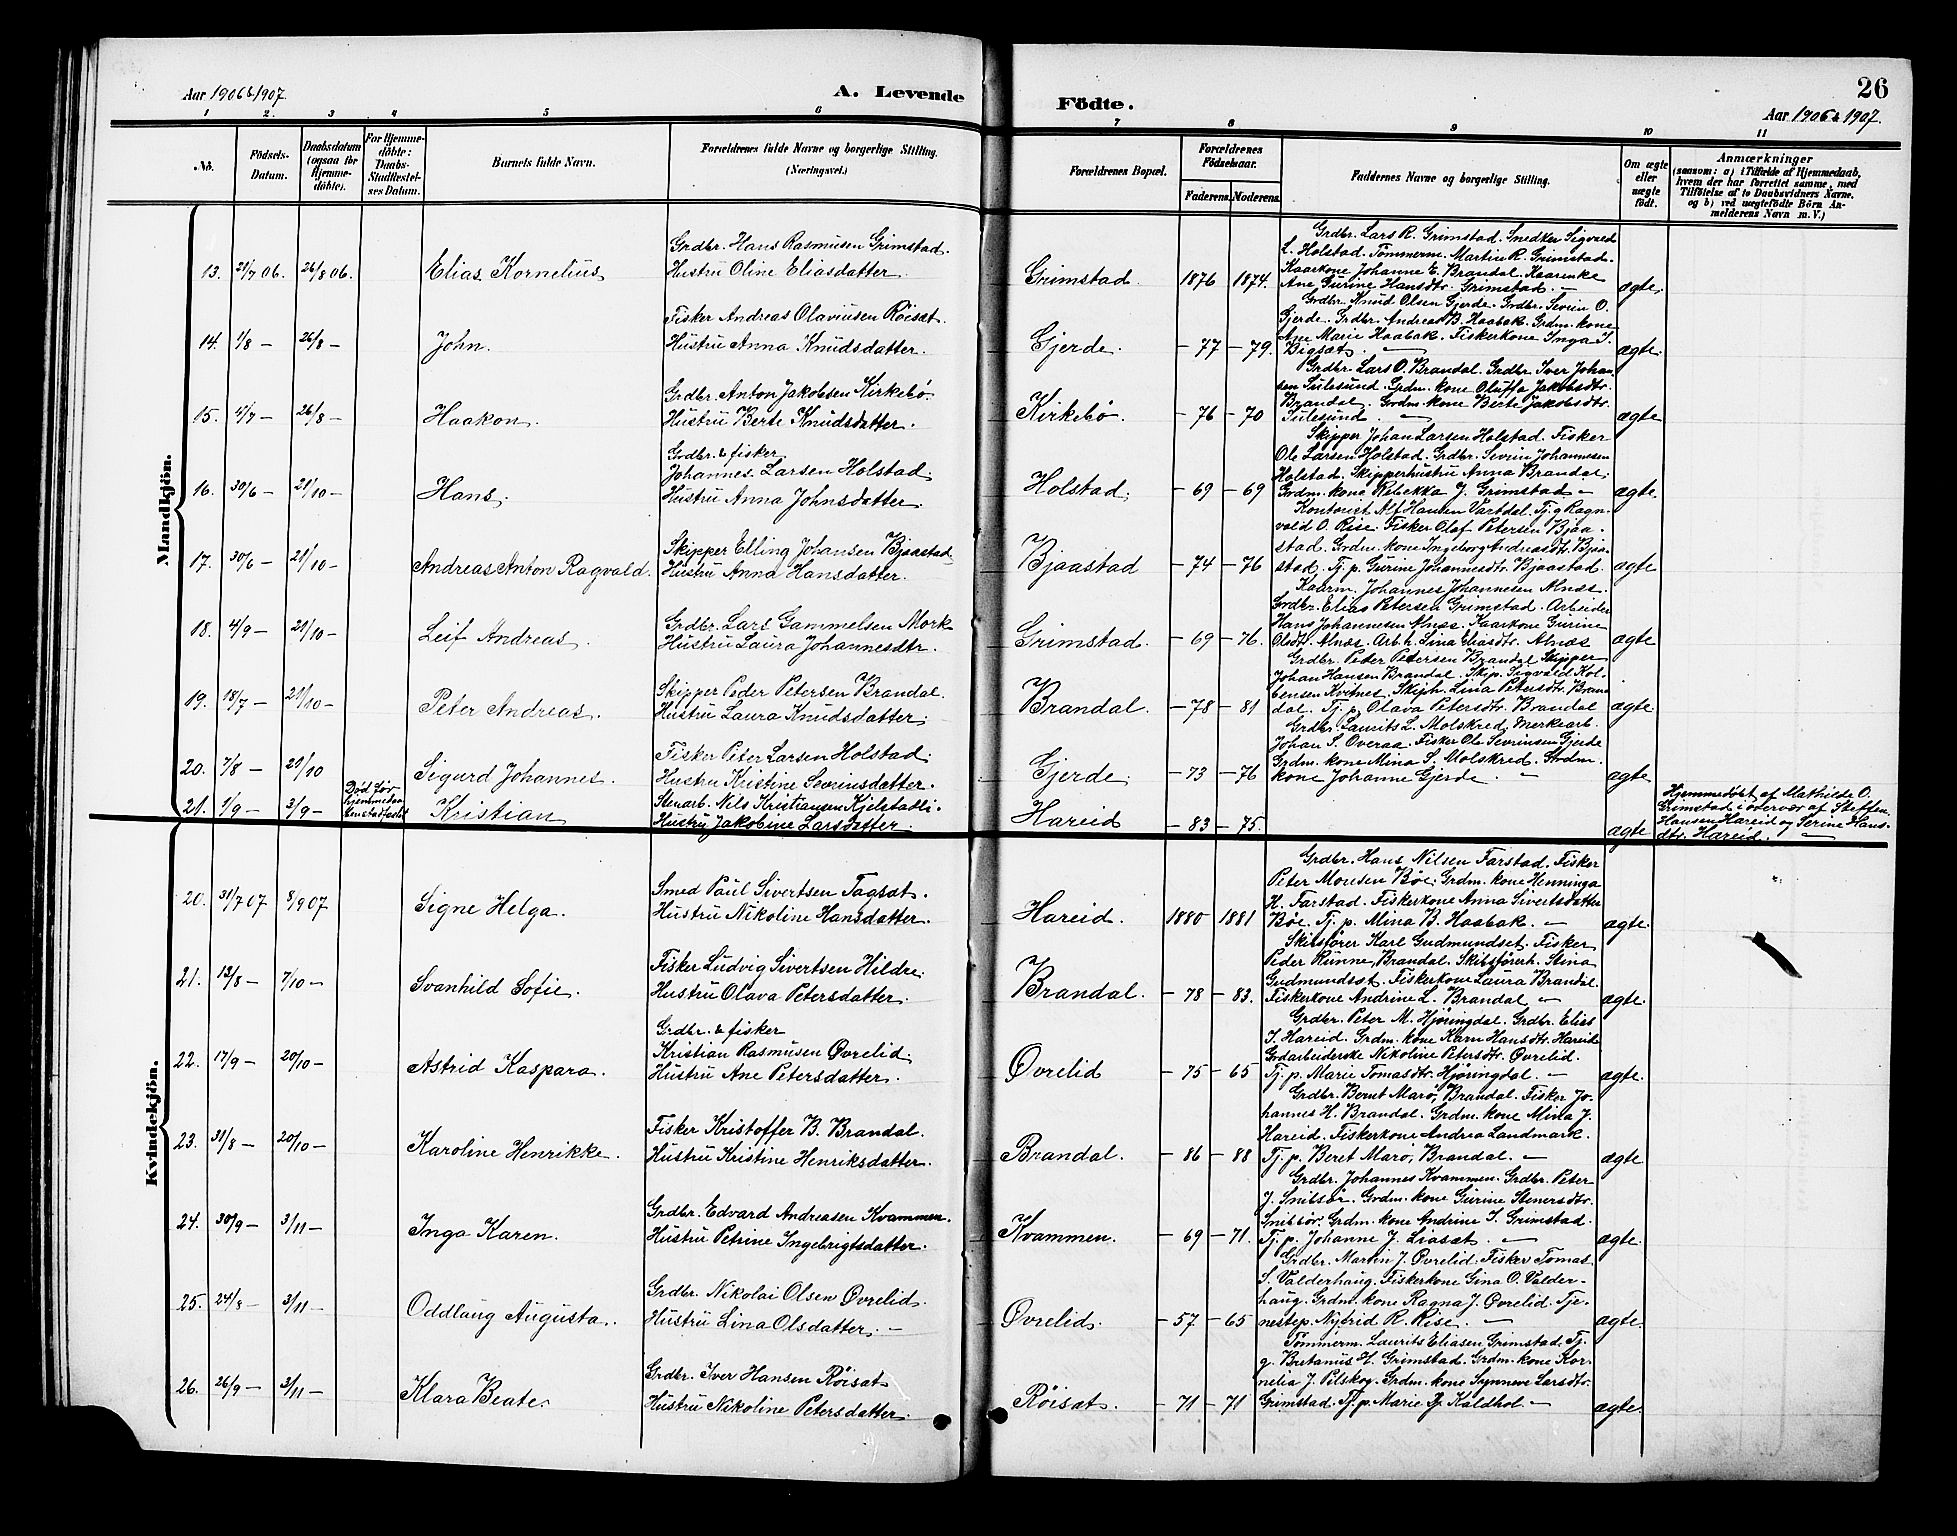 26
Aar 1906 & 1907.
A. Levende
Födte.
Aar 1906 & 1907.
1 2. 3 4 5 6 7 8 9 10 11
No.
Födsels-
Datum.
Daabsdatum
(ogsaa for
Hjemme-
döbte).
For Hjemme-
döbte:
Daabs-
Stadfestel-
ses Datum.
Barnets fulde Navn.
Forældrenes fulde Navne og borgerlige Stilling.
(Næringsvei.)
Forældrenes Bopæl.
Forældrenes
Födselsaar.
Faderens. Moderens.
Faddernes Navne og borgerlige Stilling.
Om ægte
eller
uægte
födt.
Anmærkninger
(saasom: a) i Tilfælde af Hjemmedaab,
hvem der har forrettet samme, med
Tilföielse af to Daabsvidners Navne,
og b) ved uægtefödte Börn An-
melderens Navn m. V.)
Mandkjön.
13. 21/7 06. 26/8 06.
Elias Kornelius
Grdbr. Hans Rasmusen Grimstad.
Hustru Oline Eliasdatter.
Grimstad. 1876 1874.
Grdbr. Lars R. Grimstad. Snedker Sigvard
L. Holstad. Tømmerm. Martin R. Grimstad.
Kaarkone Johanne E. Brandal. Kaarenke
Ane Gurine Hansdtr. Grimstad. —
ægte.
14. 1/8 — 26/8 —
John.
Fisker Andreas Olaviusen Röisæt.
Hustru Anna Knudsdatter.
Gjerde. — 77 — 79.
Grdbr. Knud Olsen Gjerde. Grdbr. Severin O.
Gjerde. Grdbr. Andreas B. Haabak. Grdm. kone
Ane Marie Haabak. Fiskerkone Inga I.
Bigsæt. —
ægte.
15. 4/7 — 26/8 —
Haakon.
Grdbr. Anton Jakobsen Kirkebö.
Hustru Berte Knudsdatter.
Kirkebö. — 76 — 70
Grdbr. Lars O. Brandal. Grdbr. Iver Johan-
sen Sulesund. Grdm. kone Oluffa Jakobsdtr.
Brandal. Grdm. kone Berte Jakobsdtr.
Sulesund —
ægte
16. 30/6 — 21/10 —
Hans.
Grdbr. & fisker
Johannes Larsen Holstad.
Hustru Anna Johnsdatter
Holstad. — 69 — 69
Skipper Johan Larsen Holstad. Fisker
Ole Larsen Holstad. Grdbr. Severin Johannesen
Holstad. Skipperhustru Anna Brandal.
Grdm. kone Rebekka J. Grimstad —
ægte.
17. 30/6 — 21/10 —
Andreas Anton Ragvald.
Skipper Elling Johansen Bjaastad
Hustru Anna Hansdatter.
Bjaastad — 74 — 76
Kontorist Alf Hansen Vartdal. Tj. g. Ragn-
vald O. Rise. Fisker Olaf Petersen Bjaa-
stad. Grdm. kone Ingeborg Andreasdtr. Bjaa-
stad. Tj. p. Gurine Johannesdtr. Bjaastad.
ægte
18. 4/9 — 21/10 —
Leif Andreas.
Grdbr. Lars Gammelsen Mork
Hustru Laura Johannesdtr.
Grimstad. — 69 — 76.
Kaarm. Johannes Johannesen Alnæs.
Grdbr. Elias Petersen Grimstad. Arbeider
Hans Johannesen Alnæs. Kaarkone Gurine
Olsdtr. Alnæs. Arb. h. Lina Eliasdtr. Alnæs
ægte
19. 18/7 — 21/10 —
Peter Andreas.
Skipper Peder Petersen Brandal.
Hustru Laura Knudsdatter.
Brandal. — 78 — 81
Grdbr. Peter Petersen Brandal. Skipper
Johan Hansen Brandal. Skip. Sigvald Kol-
bensen Kvitnes. Skiph. Lina Petersdtr. Bran-
dal. Tj. p. Olava Petersdtr. Brandal
ægte.
20. 7/8 — 21/10
Sigurd Johannes.
Fisker Peter Larsen Holstad.
Hustru Kristine Severinsdatter.
Gjerde. — 73 — 76
Grdbr. Laurits L. Molskred. Merkearb.
Johan S. Overaa. Fisker Ole Severinsen Gjerde
Grdm. kone Mina S. Molskred. Strdm.
kone Johanne Gjerde. —
ægte
21. 1/9 — 3/9 —
Död för
hjemmedaa-
ben stadfestet
Kristian
Stenarb. Nils Kristiansen Kjelstadli.
Hustru Jakobine Larsdatter.
Hareid — 83 — 75.
ægte
Hjemmedöbt af Mathilde O.
Grimstad i overvær af Steffen
Hansen Hareid og Serine Hans-
dtr. Hareid. —
Kvindekjön.
20. 31/7 07 8/9 07
Signe Helga.
Smed Paul Sivertsen Tagsæt.
Hustru Nikoline Hansdatter.
Hareid. 1880 1881
Grdbr. Hans Nilsen Farstad. Fisker
Peter Monsen Böe. Grdm. kone Henninga
H. Farstad. Fiskerkone Anna Sivertsdatter
Böe. Tj. p. Mina B. Haabak. —
ægte.
21. 12/8 — 7/10 —
Svanhild Sofie.
Fisker Ludvig Sivertsen Hildre.
Hustru Olava Petersdatter.
Brandal. — 78 — 83.
Skibsförer Karl Gudmundset. Fisker
Peder Runne, Brandal. Skibsförerh. Stina
Gudmundsæt. Fiskerkone Laura Brandal.
Fiskerkone Andrine L. Brandal —
ægte.
22. 17/9 — 20/10 —
Astrid Kaspara.
Grdbr. & fisker
Kristian Rasmusen Øvrelid.
Hustru Ane Petersdatter.
Øvrelid — 75 — 65
Grdbr. Peter M. Hjöringdal. Grdbr. Elias
I. Hareid. Grdm. kone Karn Hansdtr. Hareid
Grdarbeiderske Nikoline Petersdtr. Øvrelid.
Tj. p. Marie Tomasdtr. Hjöringdal. —
ægte.
23. 31/8 — 20/10 —
Karoline Henrikke.
Fisker Kristoffer B. Brandal.
Hustru Kristine Henriksdatter.
Brandal. — 86 — 88
Grdbr. Bernt Marö, Brandal. Fisker Jo-
hannes H. Brandal. Grdm. kone Mina J.
Hareid. Fiskerkone Andrea Landmark.
Tj. p. Beret Marö, Brandal. —
ægte
24. 30/9 — 3/11 —
Inga Karen.
Grdbr. Edvard Andreasen Kvammen.
Hustru Petrine Ingebrigtsdatter.
Kvammen. — 69 — 71.
Grdbr. Johannes Kvammen. Grdbr. Peter
J. Snibsör. Grdm. kone Gurine Stenersdtr.
Snibsör. Grdm. kone Andrine I. Grimstad.
Tj. p. Johanne J. Liasæt. —
ægte.
25. 24/8 — 3/11 —
Oddlaug Augusta.
Grdbr. Nikolai Olsen Øvrelid.
Hustru Lina Olsdatter. —
Øvrelid. — 57 — 65
Grdbr. Martin J. Øvrelid. Fisker Tomas
S. Valderhaug. Fiskerkone Gina O. Valder-
haug. Grdm. kone Ragna J. Øvrelid. Tje-
nestep. Nybrid R. Rise. —
ægte.
26. 26/9 — 3/11 —
Klara Beate.
Grdbr. Iver Hansen Röisæt
Hustru Nikoline Petersdatter.
Röisæt. — 71 — 71
Tömmerm. Laurits Eliasen Grimstad. Tj.
g. Bretanus H. Grimstad. Grdm. kone Kor-
nelia J. Pilskog. Grdm. kone Synneve Larsdtr.
Grimstad. Tj. p. Marie Kaldhol —
ægte.